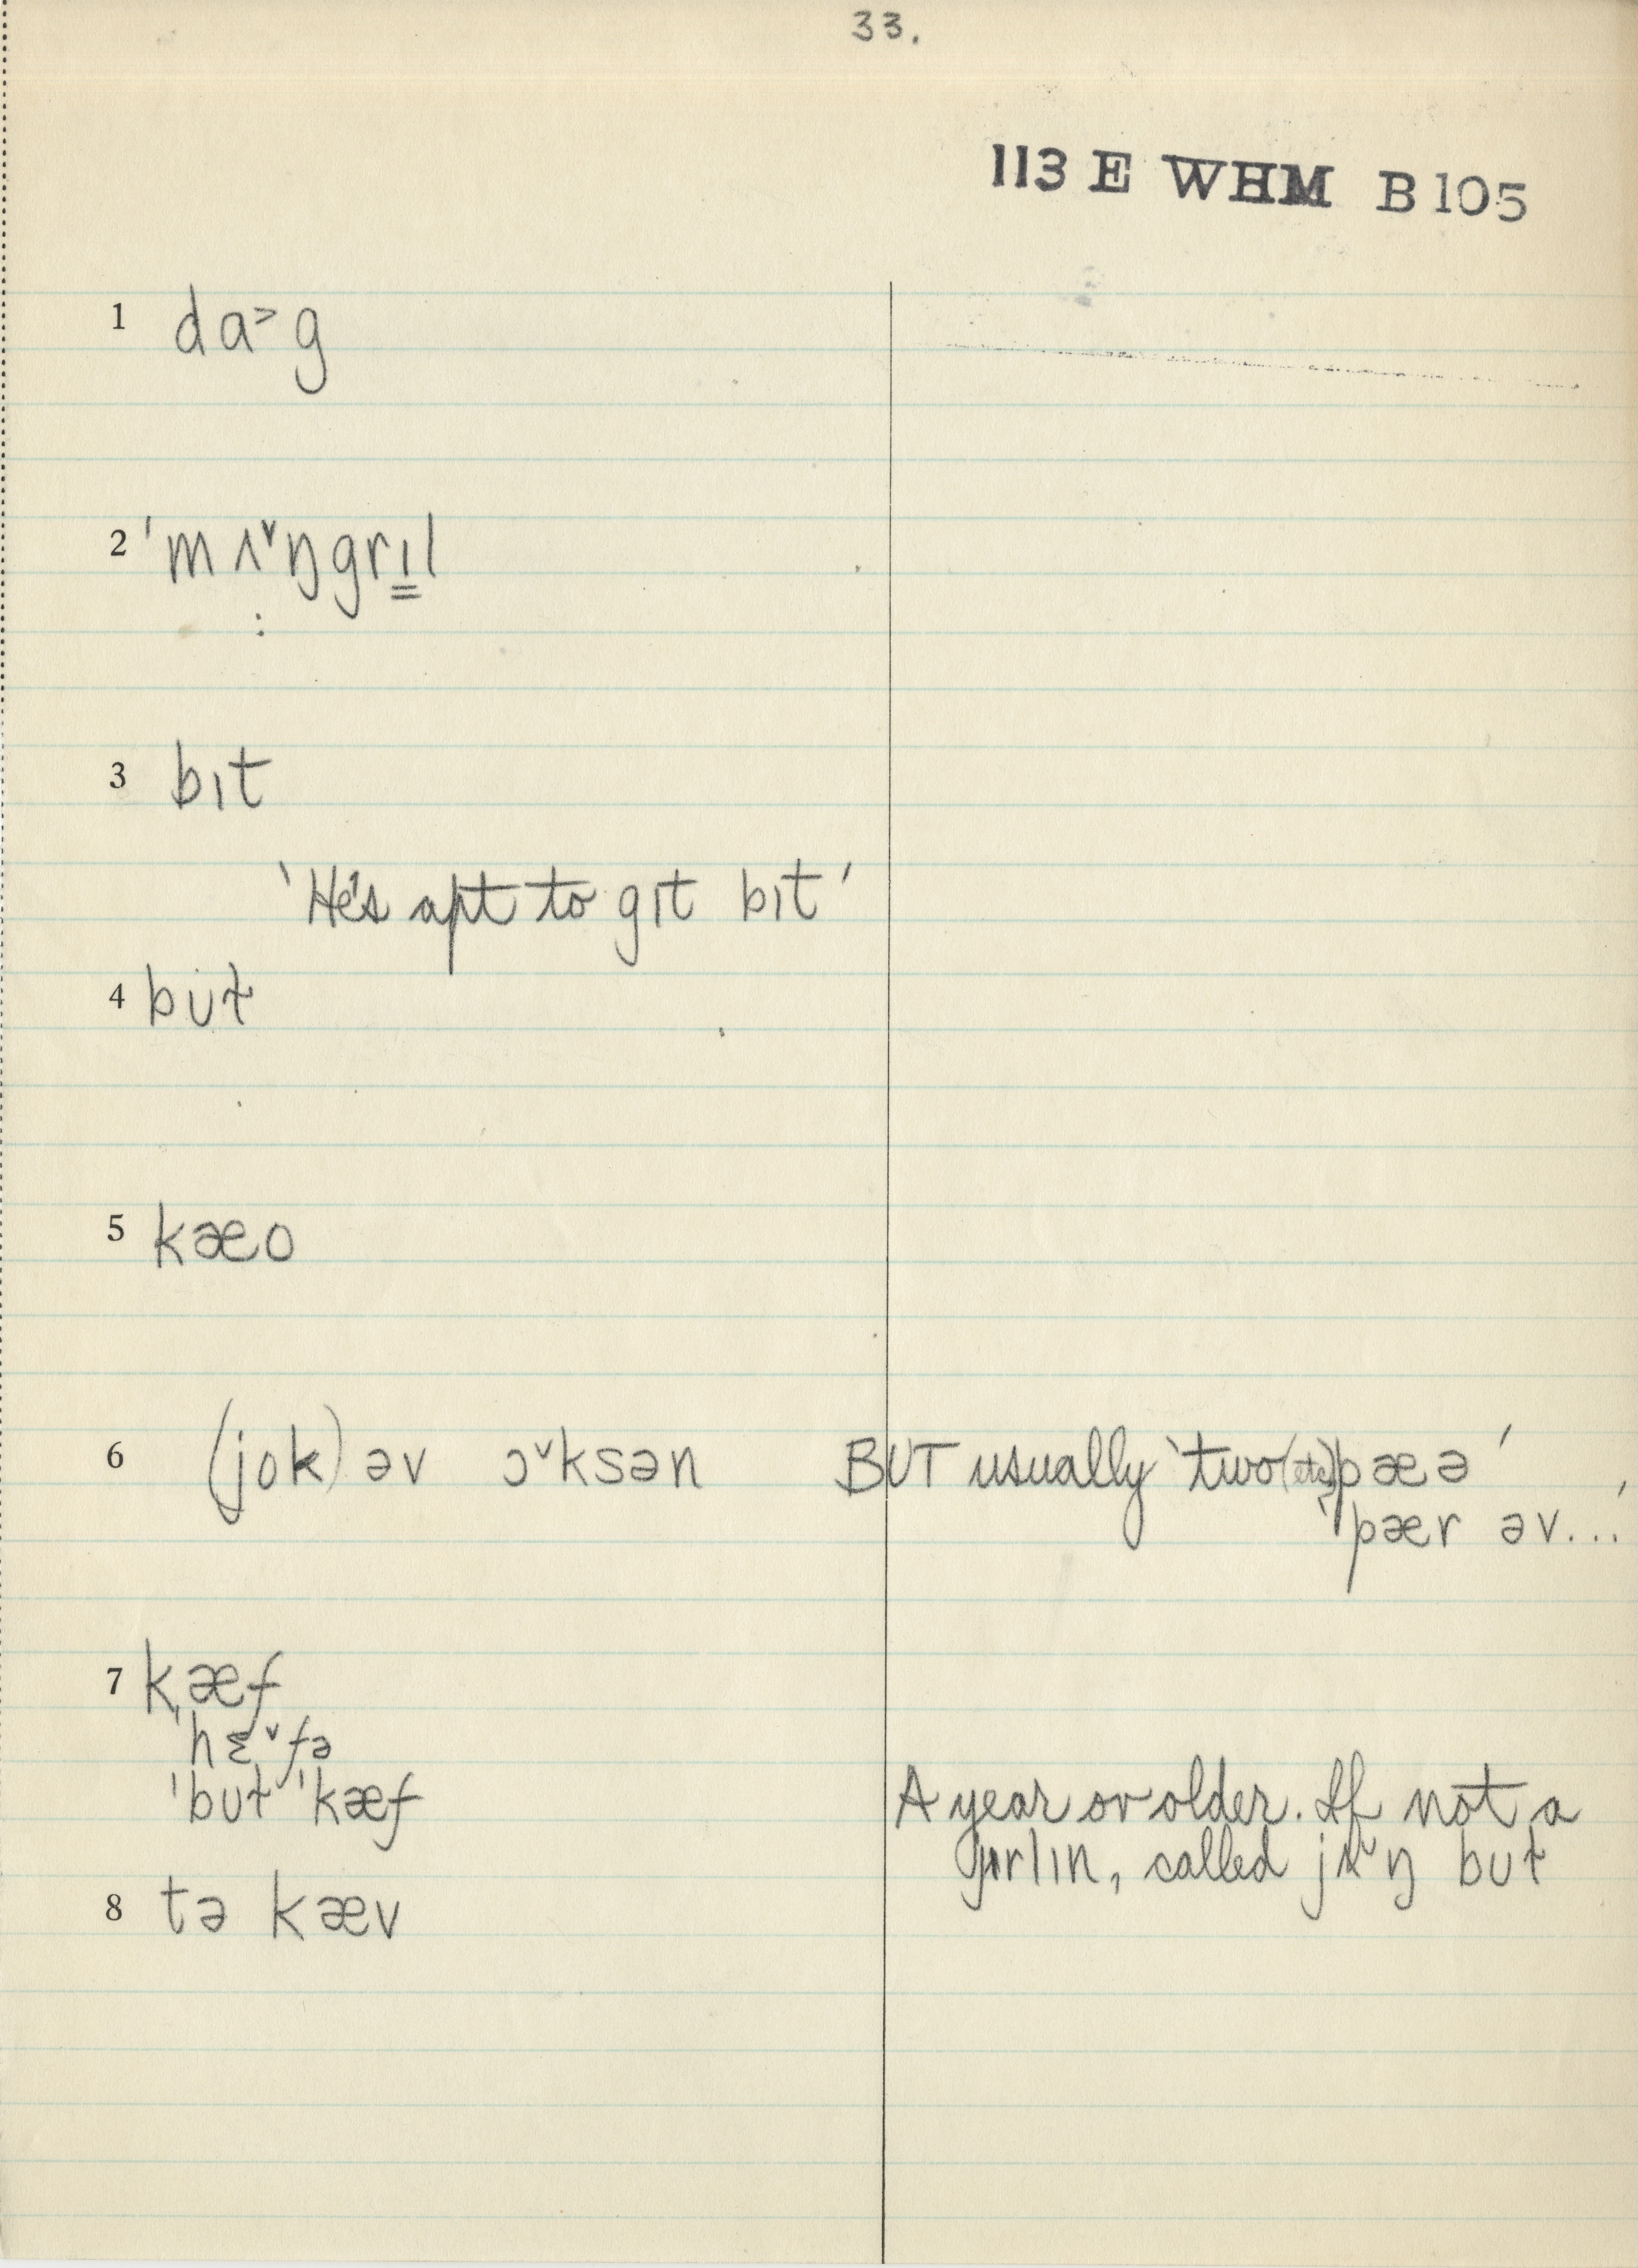 33.
113 E WHM B 105
1 da˃g
2 ˈmʌ˅ŋgrɪ̳l
3 bɪt
‵He's apt to gɪt bɪt′
4 bᴜɫ
5 kæo
6 (jok) əv ɔ˅ksən BUT usually ‵two (etc.) pæə′
‵pær əv...′
7 kæf
ˈhɛ˅fə
ˈbᴜɫ ˈkæf A year or older. If not a
jɪrlɪn, called jʌ˅ŋ bᴜɫ
8 tə kæv